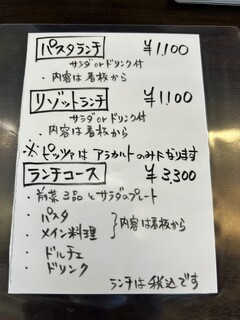 パスタランチ ¥1,100
サラダorドリンク付
・内容は看板から
リゾットランチ ¥1,100
サラダorドリンク付
・内容は看板から
※ピッツァはアラカルトのみになります
ランチコース ¥3,300
・前菜3品とサラダのプレート
・パスタ
・メイン料理 }内容は看板から
・ドルチェ
・ドリンク
ランチは税込です